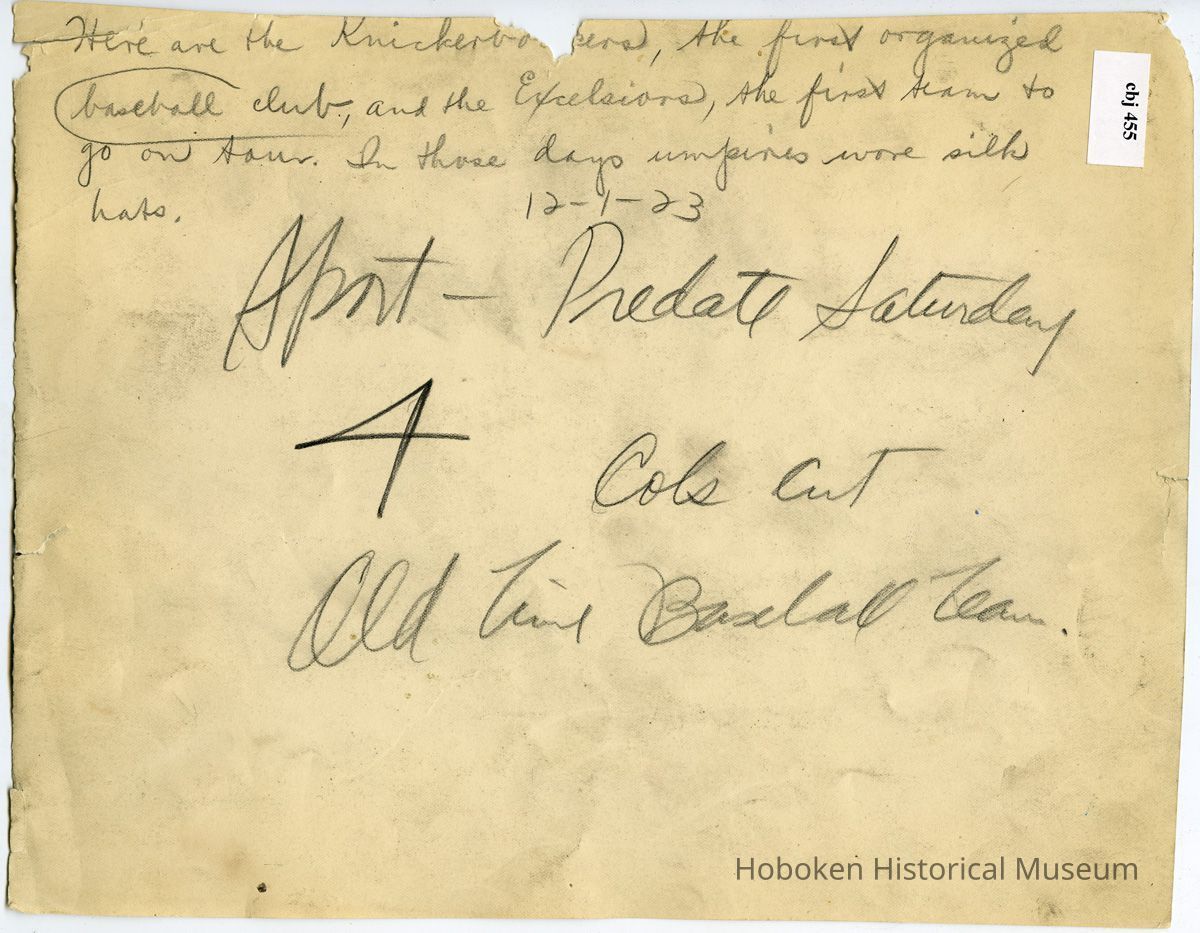 Here are the Knickerbockers, the first organized
baseball club, and the Excelsiors, the first team to
go on tour. In those days umpires wore silk
hats.
12-1-23
cbj 455
Sport - Predate Saturday
4 Cols cut
Old Time Baseball Team.
Hoboken Historical Museum